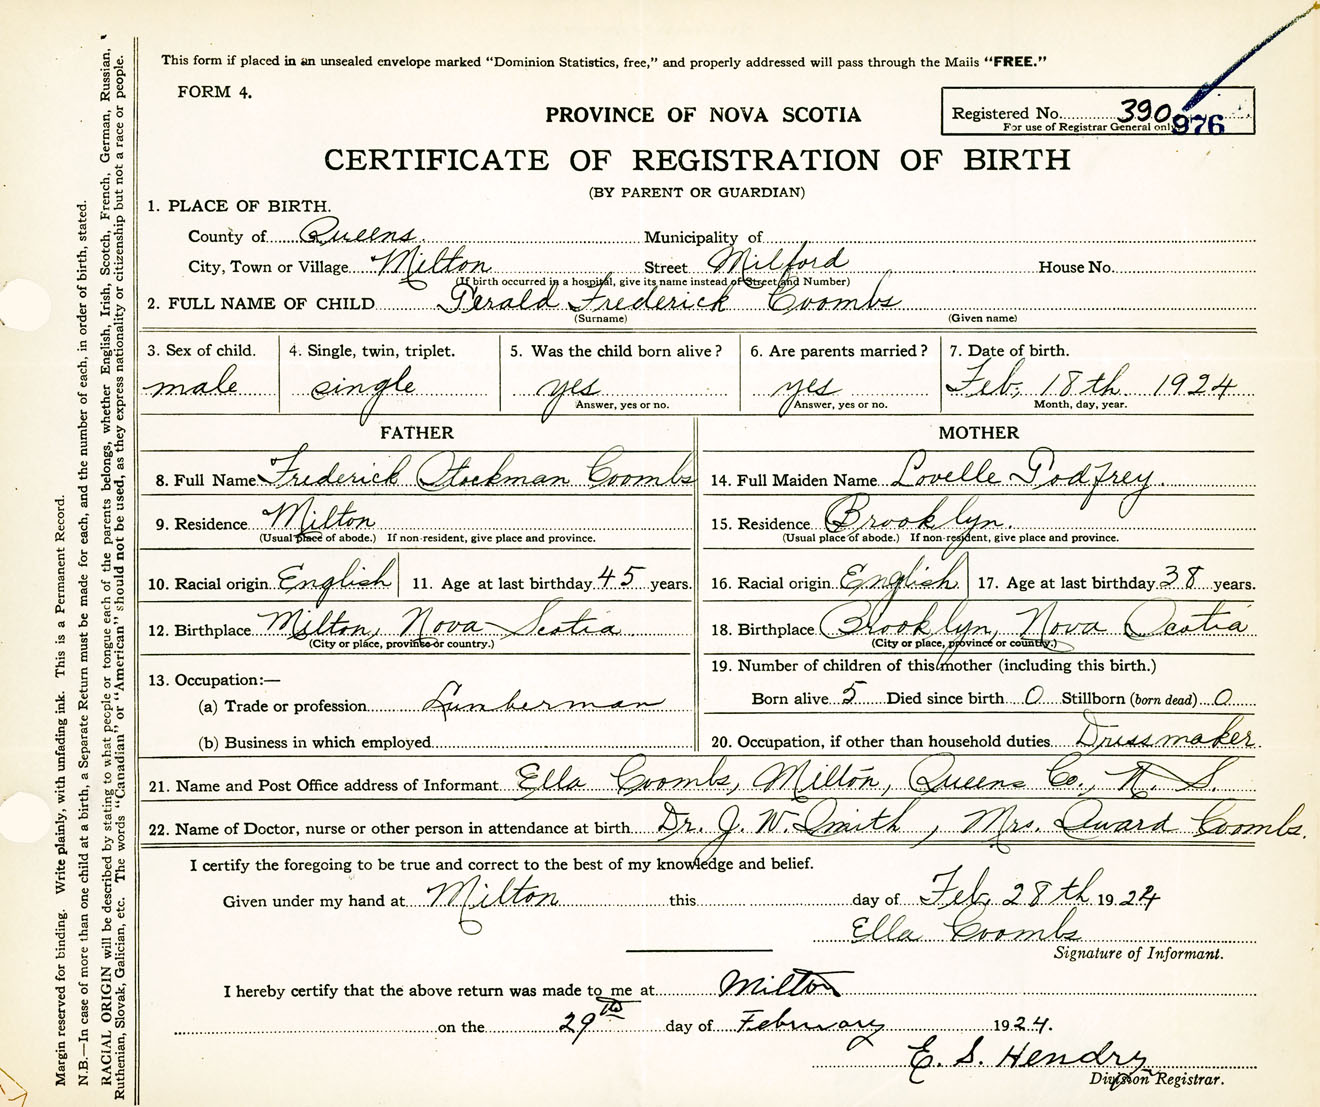 This form if placed in an unsealed envelope marked "Dominion Statistics, free," and properly addressed will pass through the Mails "FREE."
FORM 4.
PROVINCE OF NOVA SCOTIA
Registered No. 390
For use of Registrar General only
976
CERTIFICATE OF REGISTRATION OF BIRTH
(BY PARENT OR GUARDIAN)
1. PLACE OF BIRTH.
County of Queens. Municipality of
City, Town or Village Milton Street Milford House No.
(If birth occurred in a hospital, give its name instead of Street and Number)
2. FULL NAME OF CHILD Gerald Frederick Coombs
(Surname) (Given name)
3. Sex of child. 4. Single, twin, triplet. 5. Was the child born alive? 6. Are parents married? 7. Date of birth.
male single yes yes Feb. 18th 1924
Answer, yes or no. Answer, yes or no. Month, day, year.
FATHER MOTHER
8. Full Name Frederick Stockman Coombs 14. Full Maiden Name Lovelle Godfrey.
9. Residence Milton 15. Residence Brooklyn.
(Usual place of abode.) If non-resident, give place and province. (Usual place of abode.) If non-resident, give place and province.
10. Racial origin English 11. Age at last birthday 45 years. 16. Racial origin English 17. Age at last birthday 38 years.
12. Birthplace Milton, Nova Scotia 18. Birthplace Brooklyn, Nova Scotia
(City or place, province or country.) (City or place, province or country.)
13. Occupation:— 19. Number of children of this mother (including this birth.)
(a) Trade or profession Lumberman Born alive 5 Died since birth 0 Stillborn (born dead) 0
(b) Business in which employed 20. Occupation, if other than household duties Dressmaker.
21. Name and Post Office address of Informant Ella Coombs, Milton, Queens Co., N. S.
22. Name of Doctor, nurse or other person in attendance at birth Dr. J. W. Smith, Mrs. Coombs.
I certify the foregoing to be true and correct to the best of my knowledge and belief.
Given under my hand at Milton this day of Feb. 28th 1924
Ella Coombs
Signature of Informant.
I hereby certify that the above return was made to me at Milton
on the 29th day of February 1924.
E. S. Hendry
Division Registrar.
Margin reserved for binding. Write plainly, with unfading ink. This is a Permanent Record.
N.B.—In case of more than one child at a birth, a Separate Return must be made for each, and the number of each, in order of birth, stated.
RACIAL ORIGIN will be described by stating to what people or tongue each of the parents belongs, whether English, Irish, Scotch, French, German, Russian,
Ruthenian, Slovak, Galician, etc. The words "Canadian" or "American" should not be used, as they express nationality or citizenship but not a race or people.